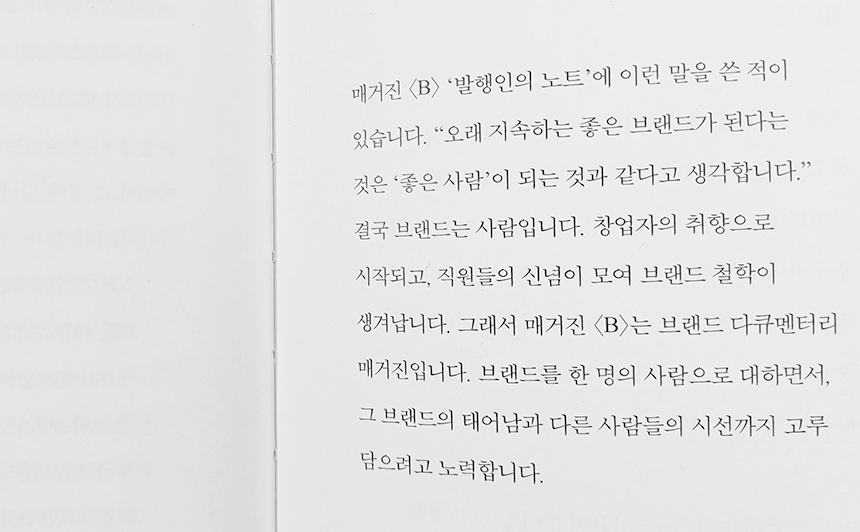 매거진 〈B〉 ‘발행인의 노트’에 이런 말을 쓴 적이
있습니다. “오래 지속하는 좋은 브랜드가 된다는
것은 ‘좋은 사람’이 되는 것과 같다고 생각합니다.”
결국 브랜드는 사람입니다. 창업자의 취향으로
시작되고, 직원들의 신념이 모여 브랜드 철학이
생겨납니다. 그래서 매거진 〈B〉는 브랜드 다큐멘터리
매거진입니다. 브랜드를 한 명의 사람으로 대하면서,
그 브랜드의 태어남과 다른 사람들의 시선까지 고루
담으려고 노력합니다.